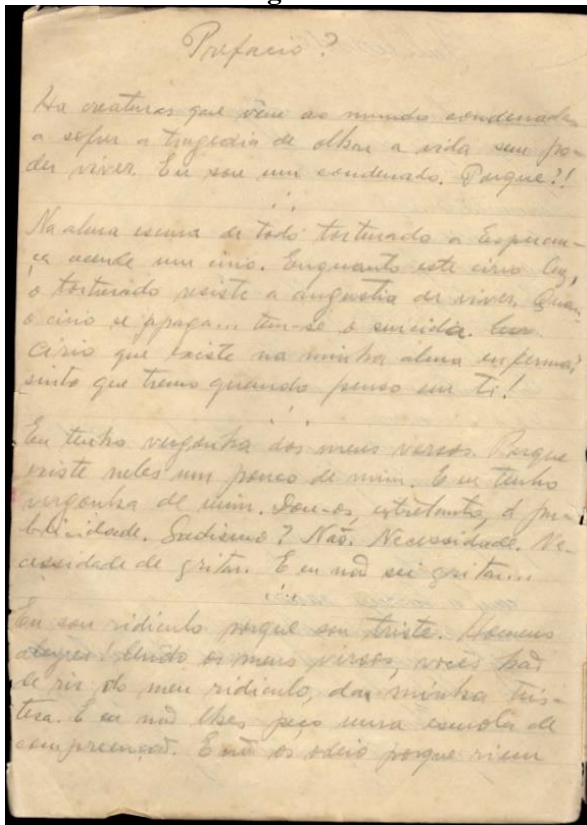 Prefacio?
Ha creaturas que vêm ao mundo condenadas
a sofrer a tragedia de olhar a vida sem po-
der viver. Eu sou um condenado. Porque?!
Na alma escura de todo torturado a Esperan-
ça acende um cirio. Enquanto este cirio luz,
o torturado resiste a angustia de viver. Quan
o cirio se apaga... tem-se o suicida.
Cirio que existe na minha alma enferma,
sinto que tremo quando penso em ti!
Eu tenho vergonha dos meus versos. Porque
existe neles um pouco de mim. E eu tenho
vergonha de mim. Dou-os, entretanto, á pu-
blicidade. Sadismo? Não. Necessidade. Ne-
cessidade de gritar. E eu não sei gritar...
Eu sou ridiculo porque sou triste. Homens
alegres! Lendo os meus versos, vocês hão
de rir do meu ridiculo, da minha tris-
tesa. E eu não lhes peço uma esmola de
compreenção. E não os odeio porque riem